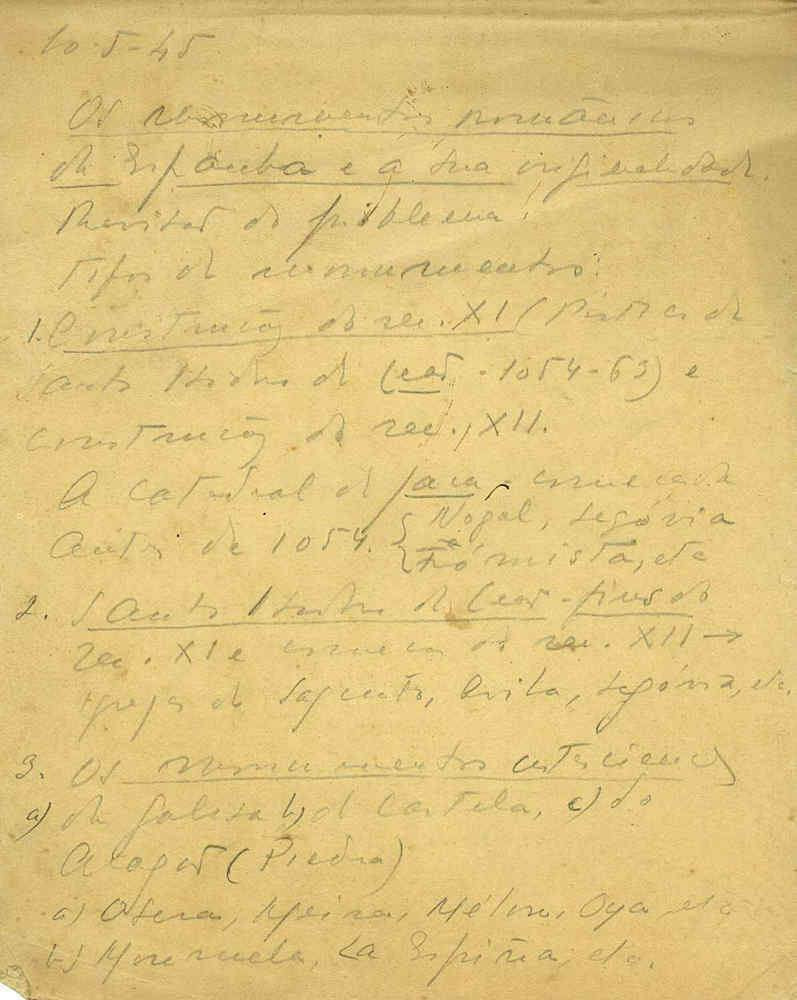 10-5-45
Os monumentos românicos
da Espanha e a sua originalidade.
Revisão do problema.
Tipos de monumentos:
1. Construção do sec. XI (Pórtico de
Santo Isidro de Leão - 1054-63) e
construção do sec. XII.
A catedral de Jaca, começada
antes de 1054. { Nogal, Segóvia
Frómista, etc
2. Santo Isidro de Leão - fins do
sec. XI e começos do sec. XII →
Igrejas de Sagunto, Avila, Segóvia, etc.
3. Os monumentos cistercienses
a) da Galiza b) de Castela, c) do
Aragão (Piedra)
a) Osera, Meira, Mélon, Oya etc
b) Moreruela, La Espiña, etc.